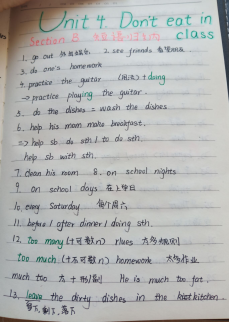 Unit 4. Don't eat in class
Section B
1. go out 2. see friends
3. do one's homework
4. practice the guitar +doing
→ practice playing the guitar.
5. do the dishes = wash the dishes
6. help his mom make breakfast.
=> help sb do sth / to do sth.
help sb with sth.
7. clean his room 8. on school nights
9. on school days 在上学日
10. every Saturday 每个周六
11. before / after dinner / doing sth.
12. Too many (+可数n) rlues 太多规则
too much (+不可数n) homework 太多作业
much too 太 + He is much too fat.
13. leave the dirty dishes in the kitchen
留下, 剩下, 落下